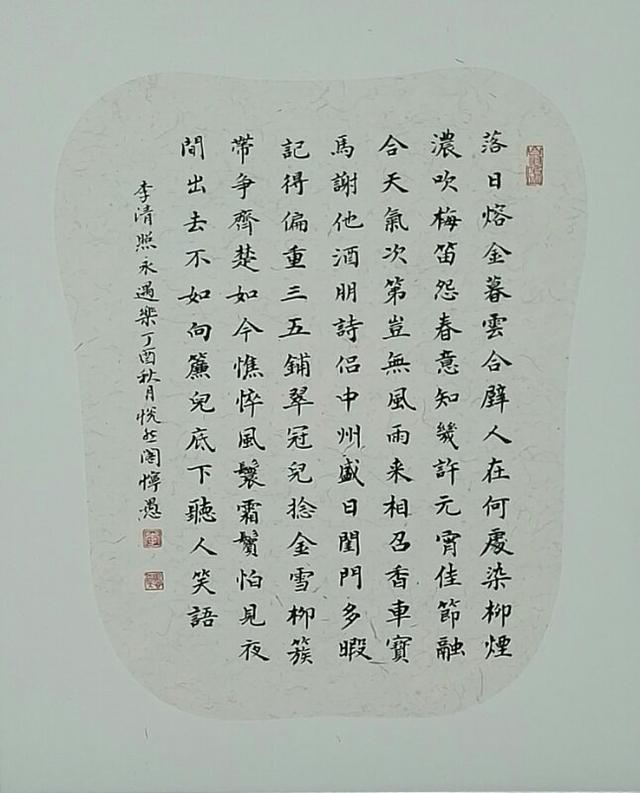 落日熔金暮雲合璧人在何處染柳煙
濃吹梅笛怨春意知幾許元宵佳節融
合天氣次第豈無風雨来相召香車寶
馬謝他酒朋詩侶中州盛日閨門多暇
記得偏重三五鋪翠冠兒捻金雪柳簇
帶争齊楚如今憔悴風鬟霜鬢怕見夜
間出去不如向簾兒底下聽人笑語
李清照永遇樂丁酉秋月